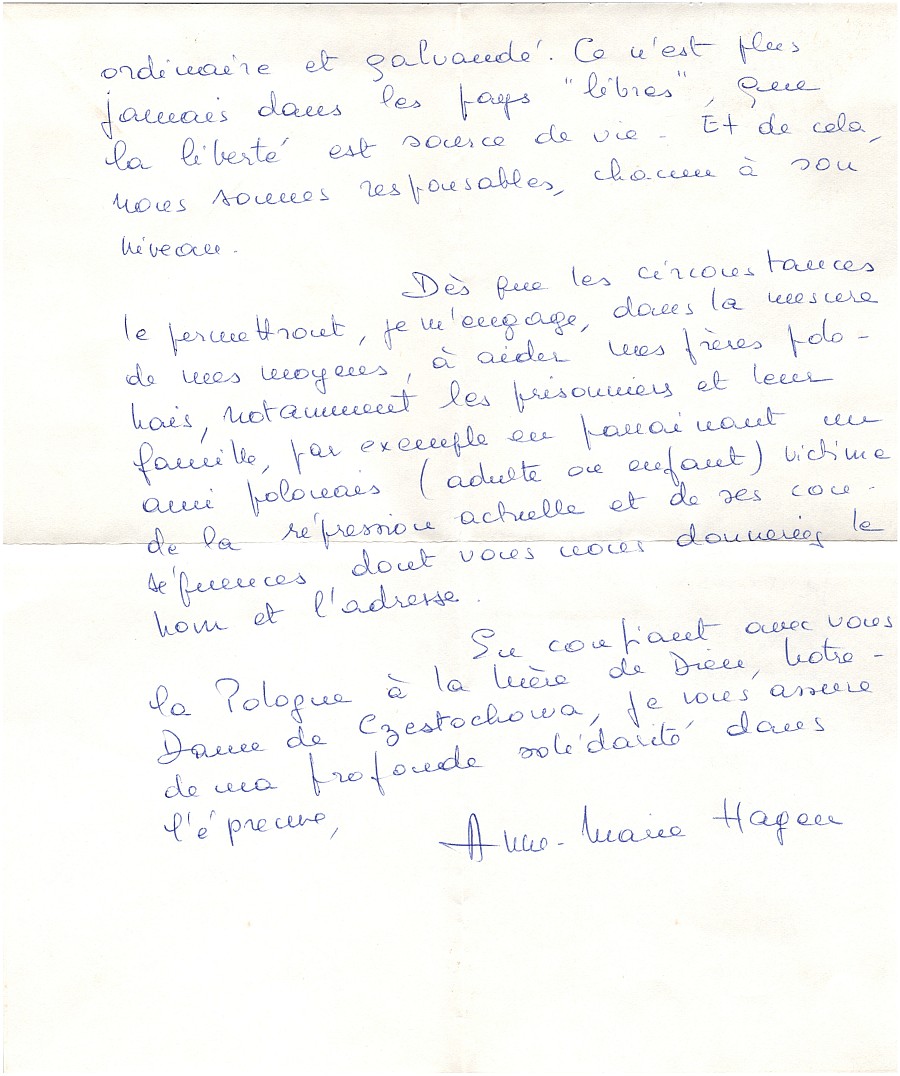 ordinaire et galvaudé. Ce n'est plus
jamais dans les pays "libres", que
la liberté est source de vie. Et de cela,
nous sommes responsables, chacun à son
niveau.
Dès que les circonstances
le permettront, je m'engage, dans la mesure
de mes moyens, à aider mes frères polo-
nais, notamment les prisonniers et leur
famille, par exemple en parrainant un
ami polonais (adulte ou enfant) victime
de la répression actuelle et de ses con-
séquences, dont vous nous donneriez le
nom et l'adresse.
En confiant avec vous
la Pologne à la Mère de Dieu, Notre-
Dame de Czestochowa, je vous assure
de ma profonde solidarité dans
l'épreuve,
Anne-Marie Hagen